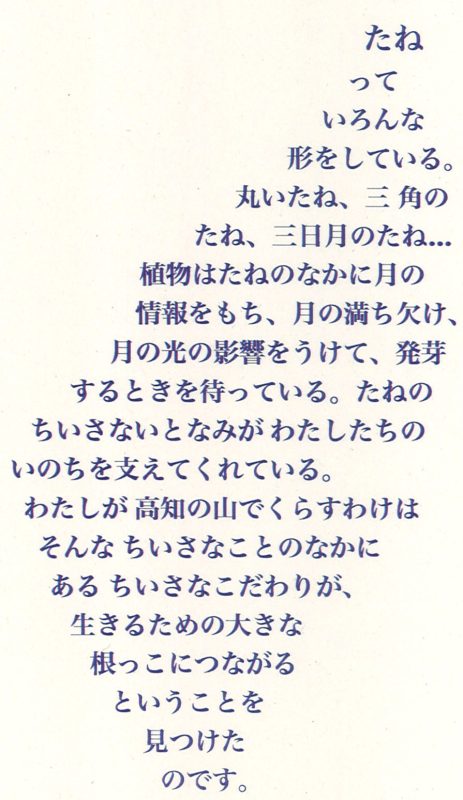 たね
って
いろんな
形をしている。
丸いたね、三 角の
たね、三日月のたね…
植物はたねのなかに月の
情報をもち、月の満ち欠け、
月の光の影響をうけて、発芽
するときを待っている。たねの
ちいさないとなみが わたしたちの
いのちを支えてくれている。
わたしが 高知の山でくらすわけは
そんな ちいさなことのなかに
ある ちいさなこだわりが、
生きるための大きな
根っこにつながる
ということを
見つけた
のです。